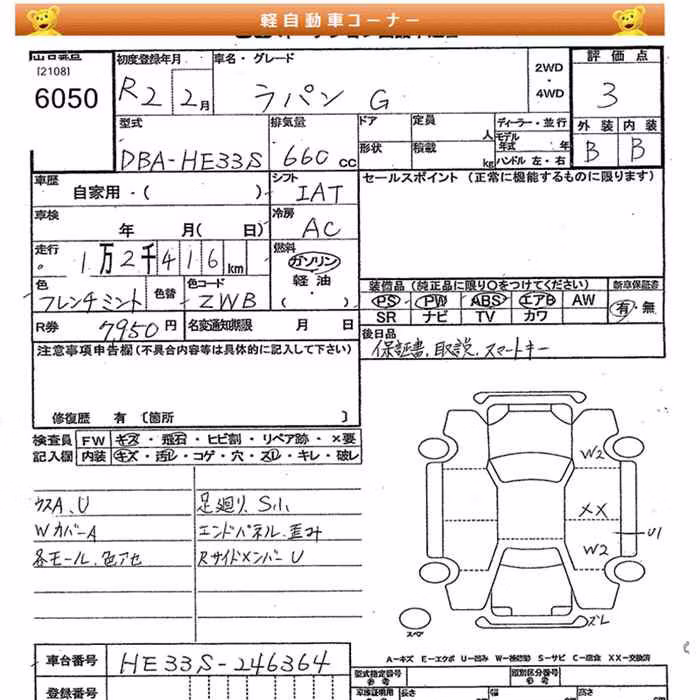 軽自動車コーナー
(2108)
6050
初度登録年月
R2 2月
車名・グレード
ラパン G
2WD
・
4WD
評価点
3
型式
DBA-HE33S
排気量
660 cc
ドア
定員
人
形状
積載
kg
ディーラー・並行
モデル年式 年
ハンドル 左・右
外装
B
内装
B
車歴
自家用・( )
シフト
IAT
セールスポイント (正常に機能するものに限ります)
車検
年 月( 日)
冷房
AC
走行
1万2千416km
燃料
ガソリン
軽油
( ・ )
色
フレンチミント
色替
色コード
ZWB
装備品 (純正品に限り○をつけてください)
PS PW ABS エアB AW
SR ナビ TV カワ
新車保証書
有・無
R券
7,950円
名変通知期限 月 日
後日品
保証書、取説、スマートキー
注意事項申告欄 (不具合内容等は具体的に記入して下さい)
修復歴 有 〔箇所 〕
検査員記入欄
FW キズ・飛石・ヒビ割・リペア跡・×要
内装 キズ・汚レ・コゲ・穴・スレ・キレ・破レ
ウスA、U
WカバーA
各モール、色アセ
足廻り、S小
エンドパネル、歪み
RサイドメンバーU
W2
XX
W2
U1
ズレ
スペア
A-キズ E-エクボ U-凹み W-補修跡 S-サビ C-腐食 XX-交換済
車台番号
HE33S-246364
登録番号
型式指定番号
参考
類別区分番号
参考
長さ
幅
高さ